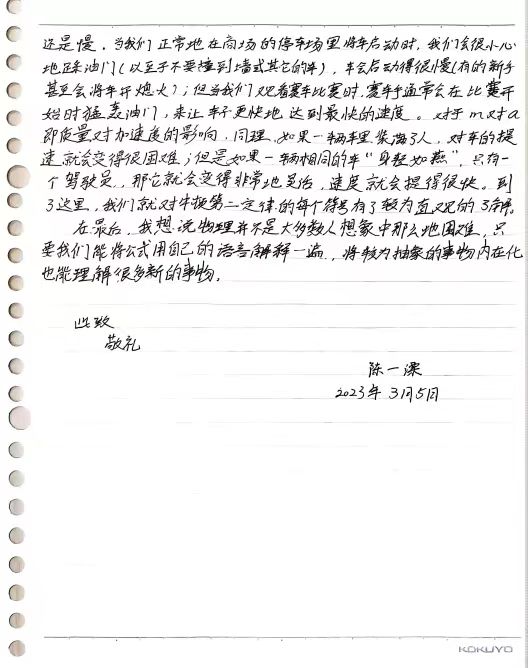 还是慢。当我们正常地在商场的停车场里将车启动时，我们会很小心
地踩油门（以至于不要撞到墙或其它的车），车会启动得很慢（有的新手
甚至会将车开熄火）；但当我们观看赛车比赛时，赛车手通常会在比赛开
始时猛轰油门，来让车子更快地达到最快的速度。对于m对a
即质量对加速度的影响，同理，如果一辆车里装满了人，对车的提
速就会变得很困难；但是如果一辆相同的车“身轻如燕”，只有一
个驾驶员，那它就会变得非常地灵活，速度就会提得很快。到
了这里，我们就对牛顿第二定律的每个符号有了较为直观的了解。
在最后，我想说物理并不是大多数人想象中那么地困难，只
要我们能将公式用自己的语言解释一遍，将较为抽象的事物内在化
也能理解很多新的事物。
此致
敬礼
陈一
2023年3月5日
KOKUYO